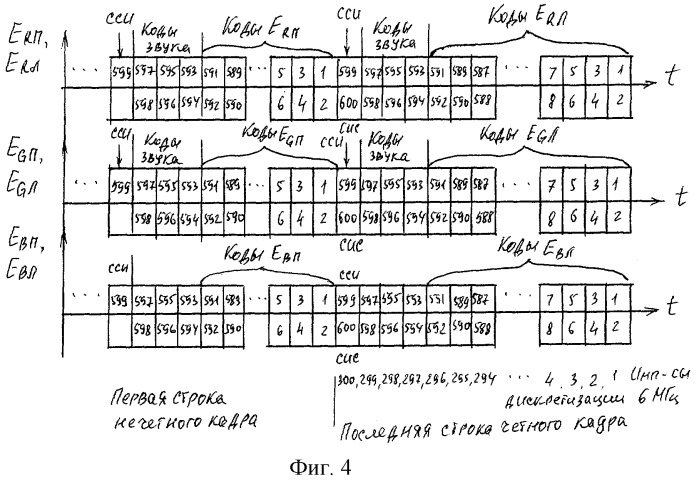 ССИ Коды звука Коды ERП ССИ Коды звука Коды ERЛ
ERП,
ERЛ
... 599 597 595 593 591 589 ... 5 3 1 599 597 595 593 591 589 587 ... 7 5 3 1
598 596 594 592 590 6 4 2 600 598 596 594 592 590 588 8 6 4 2
t
ССИ Коды звука Коды EGП ССИ СИС Коды звука Коды EGЛ
EGП,
EGЛ
... 599 597 595 593 591 589 ... 5 3 1 599 597 595 593 591 589 587 ... 7 5 3 1
598 596 594 592 590 6 4 2 600 598 596 594 592 590 588 8 6 4 2
t
EBП,
EBЛ
ССИ Коды EBП СИС ССИ Коды EBЛ
599 597 595 593 591 589 ... 5 3 1 599 597 595 593 591 589 587 ... 7 5 3 1
598 596 594 592 590 6 4 2 600 598 596 594 592 590 588 8 6 4 2
t
СИС
300, 299, 298, 297, 296, 295, 294 ... 4, 3, 2, 1 Имп-сы
дискретизации 6 МГц
Первая строка
нечетного кадра
Последняя строка четного кадра
Фиг. 4